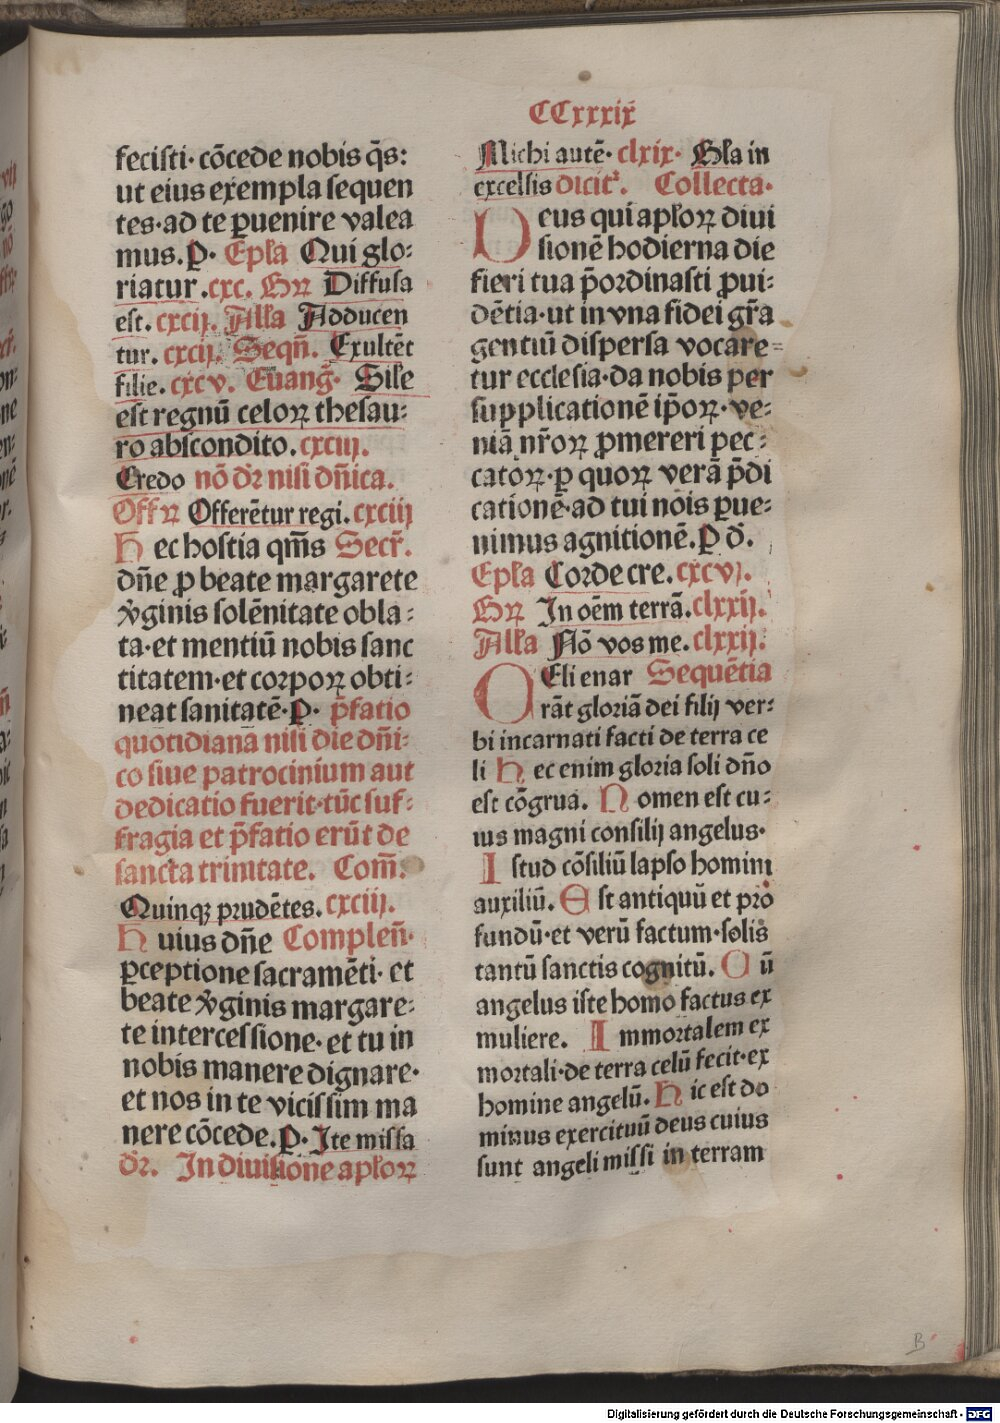 CCxxxix̄
feciſti· cōcede nobis q̄s:
ut eius exempla ſequen
tes·ad te ꝑuenire valea
mus.ꝑ· Epła Qui glo:
riatur .cxc. Gꝝ Diffuſa
eſt. cxcij. Ałła Adducen
tur. cxcij. Seqn̄. Exultēt
filie. cxcv. Euang̃· Siłe
eſt regnū celoꝝ theſau:
ro abſcondito. cxciij.
Credo nō dr̄ niſi dn̄ica.
Offꝝ Offerētur regi. cxciij
Hec hoſtia qm̄s Secr̄.
dn̄e ꝓ beate margarete
v̾ginis ſolēnitate obla:
ta·et mentiū nobis ſanc
titatem·et corpoꝝ obti:
neat ſanitatē·ꝑ· p̄fatio
quotidianā niſi die dn̄i:
co ſiue patrocinium aut
dedicatio fuerit·tūc ſuf:
fragia et p̄fatio erūt de
ſancta trinitate. Com̄.
Quinqꝫ prudētes. cxciij.
Huius dn̄e Complen̄·
ꝑceptione ſacramēti· et
beate v̾ginis margare:
te interceſſione· et tu in
nobis manere dignare·
et nos in te viciſſim ma
nere cōcede.ꝑ· Ite miſſa
dr̄. In diuiſione apłoꝝ
Michi autē· clxix· Gła in
excelſis dicit᷑. Collecta·
Deus qui apłoꝝ diui
ſionē hodierna die
fieri tua p̄ordinaſti ꝓui:
dētia·ut in vna fidei gr̄a
gentiū diſperſa vocare=
tur eccleſia·da nobis per
ſupplicationē ip̄oꝝ· ve:
niā nr̄oꝝ ꝓmereri pec:
catoꝝ·ꝑ quoꝝ verā p̄di
cationē·ad tui nōis ꝑue:
nimus agnitionē.ꝑ d̄.
Epła Corde cre. cxcvj.
Gꝝ In oēm terrā. clxxij.
Ałła Nō vos me. clxxij.
Celi enar Sequētia
rāt gloriā dei filij ver:
bi incarnati facti de terra ce
li Hec enim gloria ſoli dn̄o
eſt cōgrua. Nomen eſt cu:
ius magni conſilij angelus·
Iſtud cōſiliū lapſo homini
auxiliū. Eſt antiquū et pro
fundū·et verū factum·ſolis
tantū ſanctis cognitū. Cū
angelus iſte homo factus ex
muliere. Immortalem ex
mortali·de terra celū fecit·ex
homine angelū. Hic eſt do
minus exercituū deus cuius
ſunt angeli miſſi in terram
B
Digitalisierung gefördert durch die Deutsche Forschungsgemeinschaft - DFG